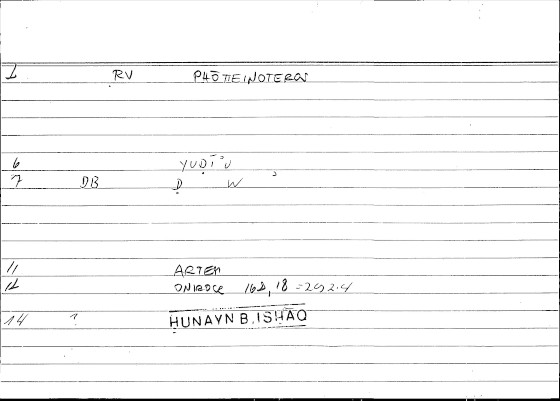 1 RV PHŌTEINOTEROS
6 YUḌĪʾU
7 DB Ḍ W ʾ
11 ARTEM
12 ONIROCR 162, 18 = 292.4
14 ? HUNAYN B. ISHAQ